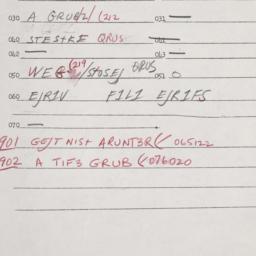 030 A GRUB/2/ (212 031 —
040 STESTKE QRUS
062 — 063 —
050 WE (219 /STOSEJ QRUS 051 O
060 EJRIV FILI EJRIFS
070 —
901 GEJT NIST ARUNTER (/ 065122
902 A TIFS GRUB (/ 076020